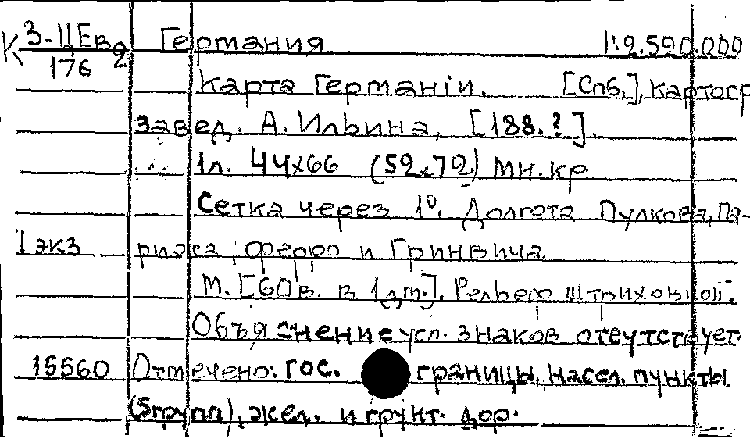 К 3-ЦЕв 2 Германия 1:2.520.000
176
Карта Германіи. [Спб.], Картогр
завед. А. Ильина, [188.?].
1л. 44х66 (52х72) мн.кр
Сетка через 1°. Долгота Пулкова, Па-
1 экз рижа, Ферро и Гринвича
М. [60в. в 1дм.]. Рельеф штриховой.
Объяснение усл. знаков отсутствует.
15560 Отмечено: гос. границы, насел. пункты
(5групп), жел. и грунт. дор.